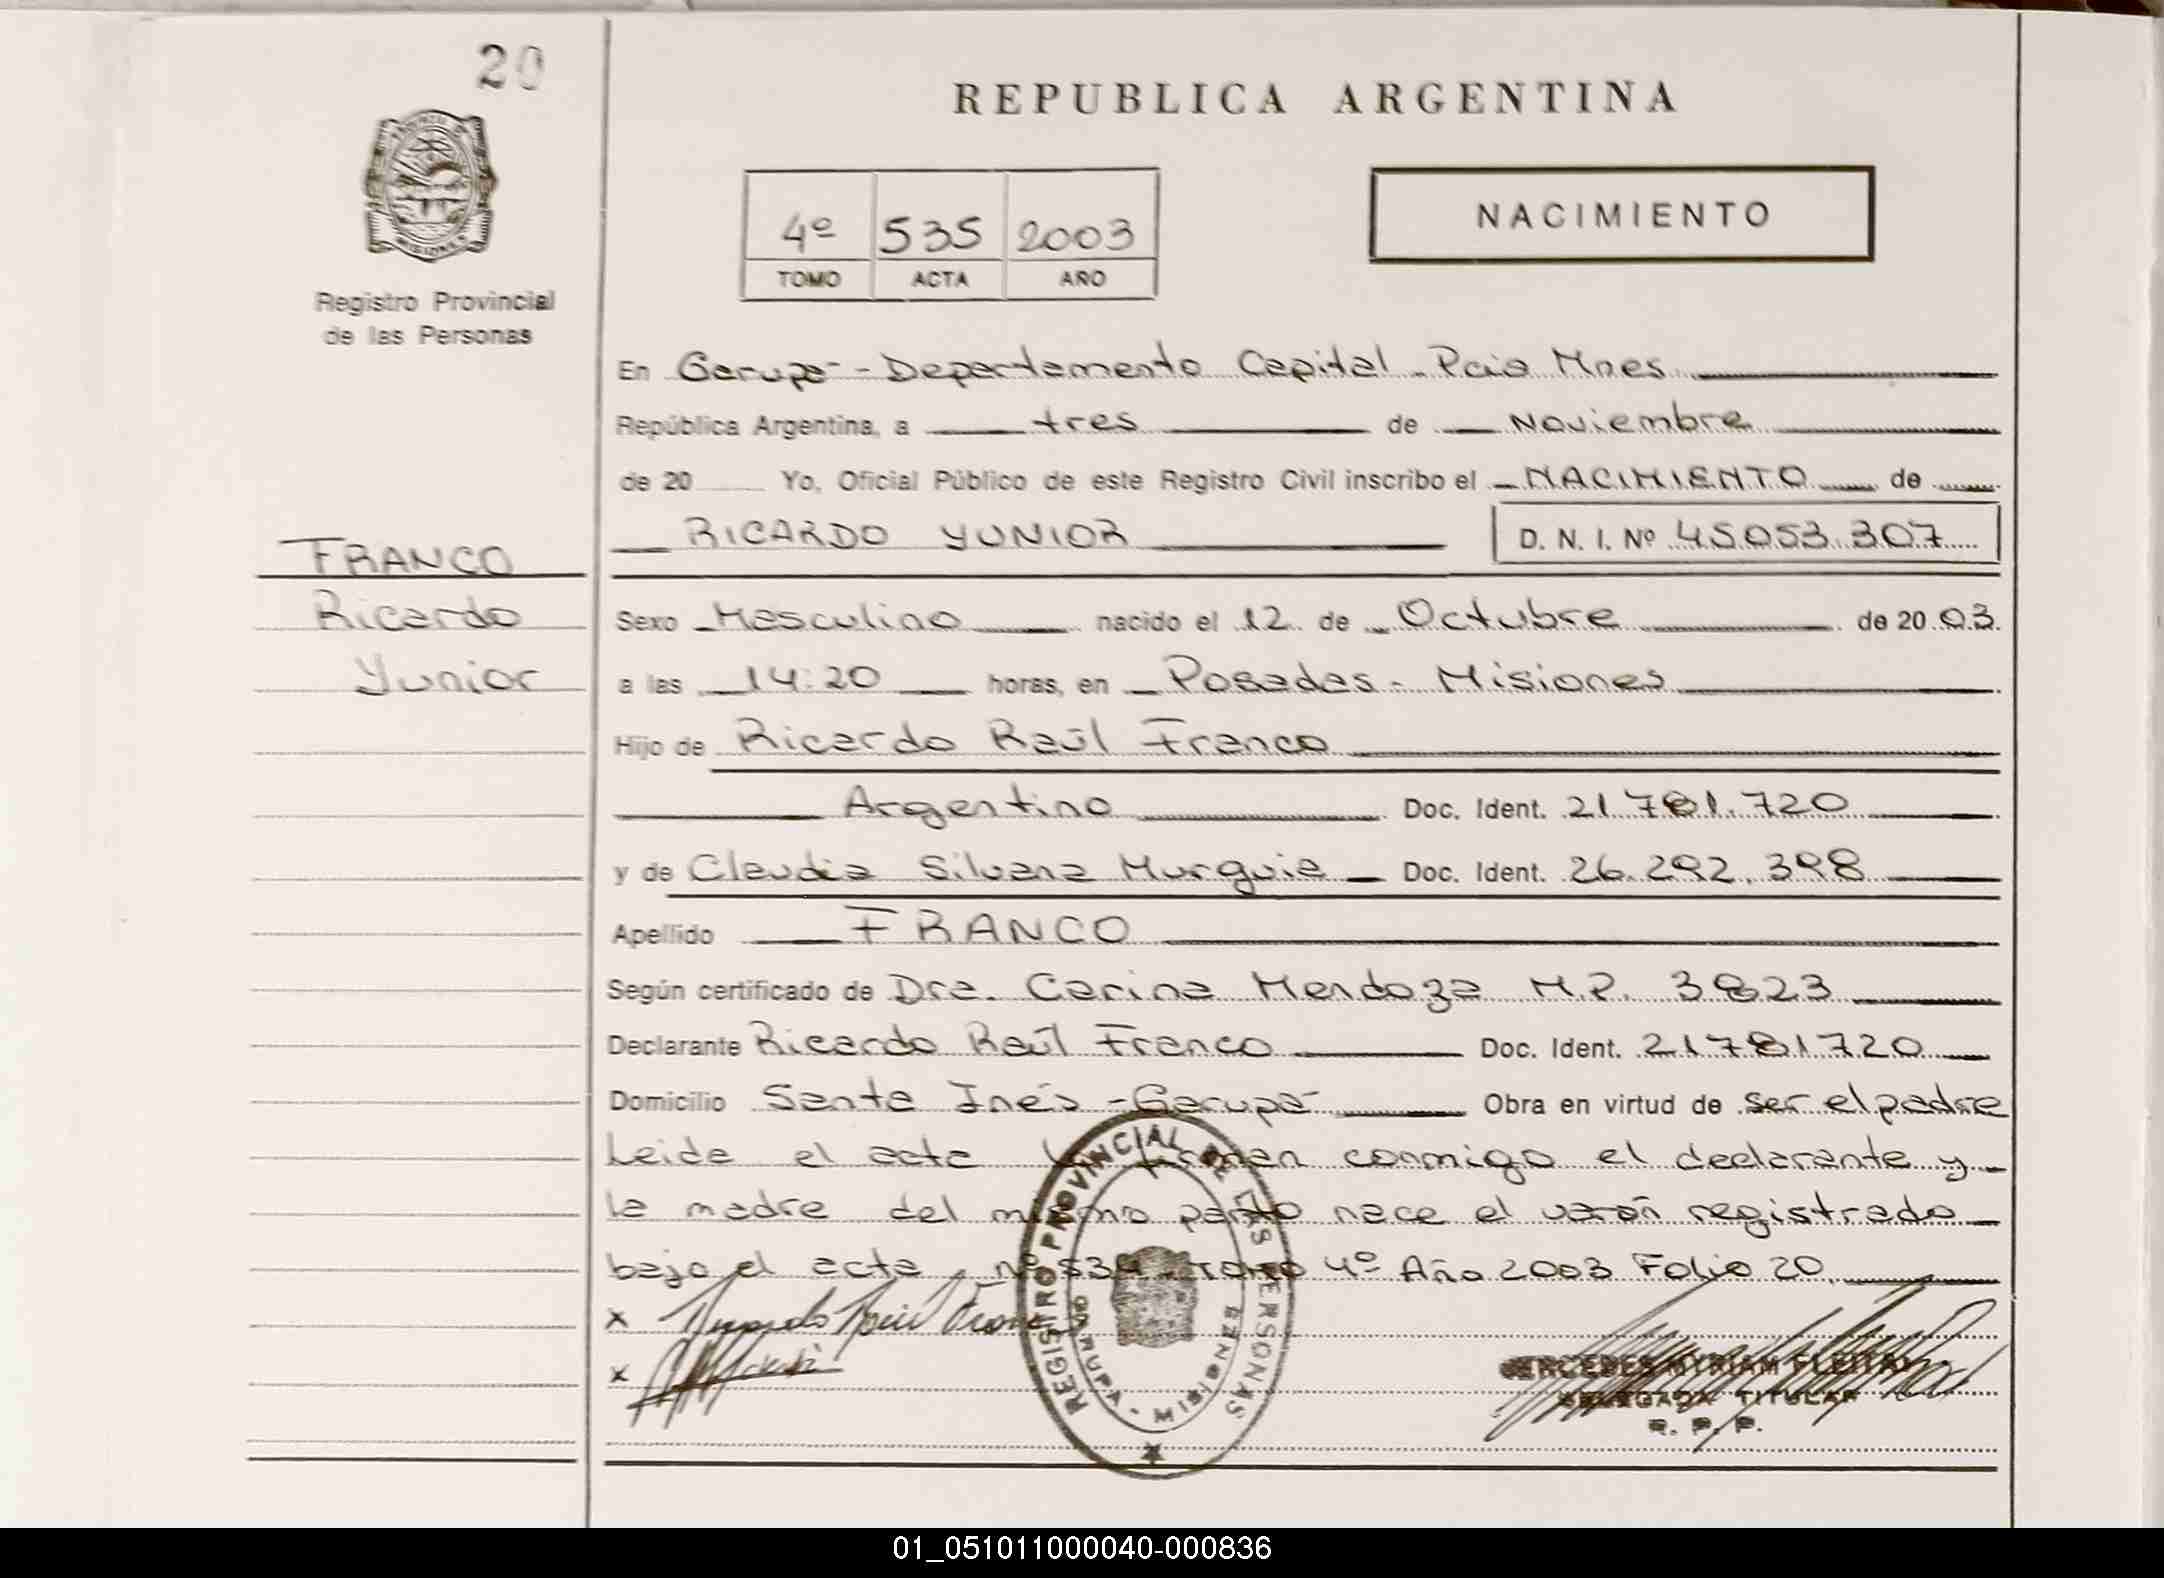 20
REPUBLICA ARGENTINA
NACIMIENTO
4º 535 2003
TOMO ACTA AÑO
Registro Provincial
de las Personas
En Garupá - Departamento Capital - Pcia Mnes
República Argentina, a tres de Noviembre
de 20 Yo, Oficial Público de este Registro Civil inscribo el NACIMIENTO de
RICARDO YUNIOR D. N. I. Nº 45.053.307
FRANCO
Ricardo
Yunior
Sexo Masculino nacido el 12 de Octubre de 2003.
a las 14:20 horas, en Posadas - Misiones
Hijo de Ricardo Raúl Franco
Argentino Doc. Ident. 21.781.720
y de Claudia Silvana Murguia Doc. Ident. 26.292.398
Apellido FRANCO
Según certificado de Dra. Carina Mendoza M.P. 3823
Declarante Ricardo Raúl Franco Doc. Ident. 21781720
Domicilio Santa Inés - Garupá Obra en virtud de ser el padre
Leida el acta firman conmigo el declarante y
la madre del mismo parto nace el varón registrado
bajo el acta nº 534 Tomo 4º Año 2003 Folio 20.
x
x
REGISTRO PROVINCIAL DE LAS PERSONAS
GARUPA - MISIONES
MERCEDES MYRIAM
DELEGADA TITULAR
R. P. P.
01_051011000040-000836